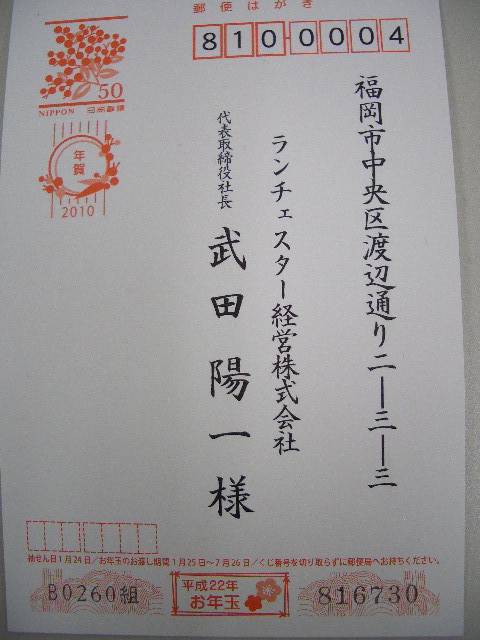 郵便はがき
810-0004
50
NIPPON 日本郵便
年賀
2010
福岡市中央区渡辺通り二ー三ー三
ランチェスター経営株式会社
代表取締役社長
武田陽一様
抽せん日1月24日/お年玉のお渡し期間1月25日〜7月26日/くじ番号を切り取らずに郵便局へお持ちください。
B0260組
平成22年
お年玉
816730